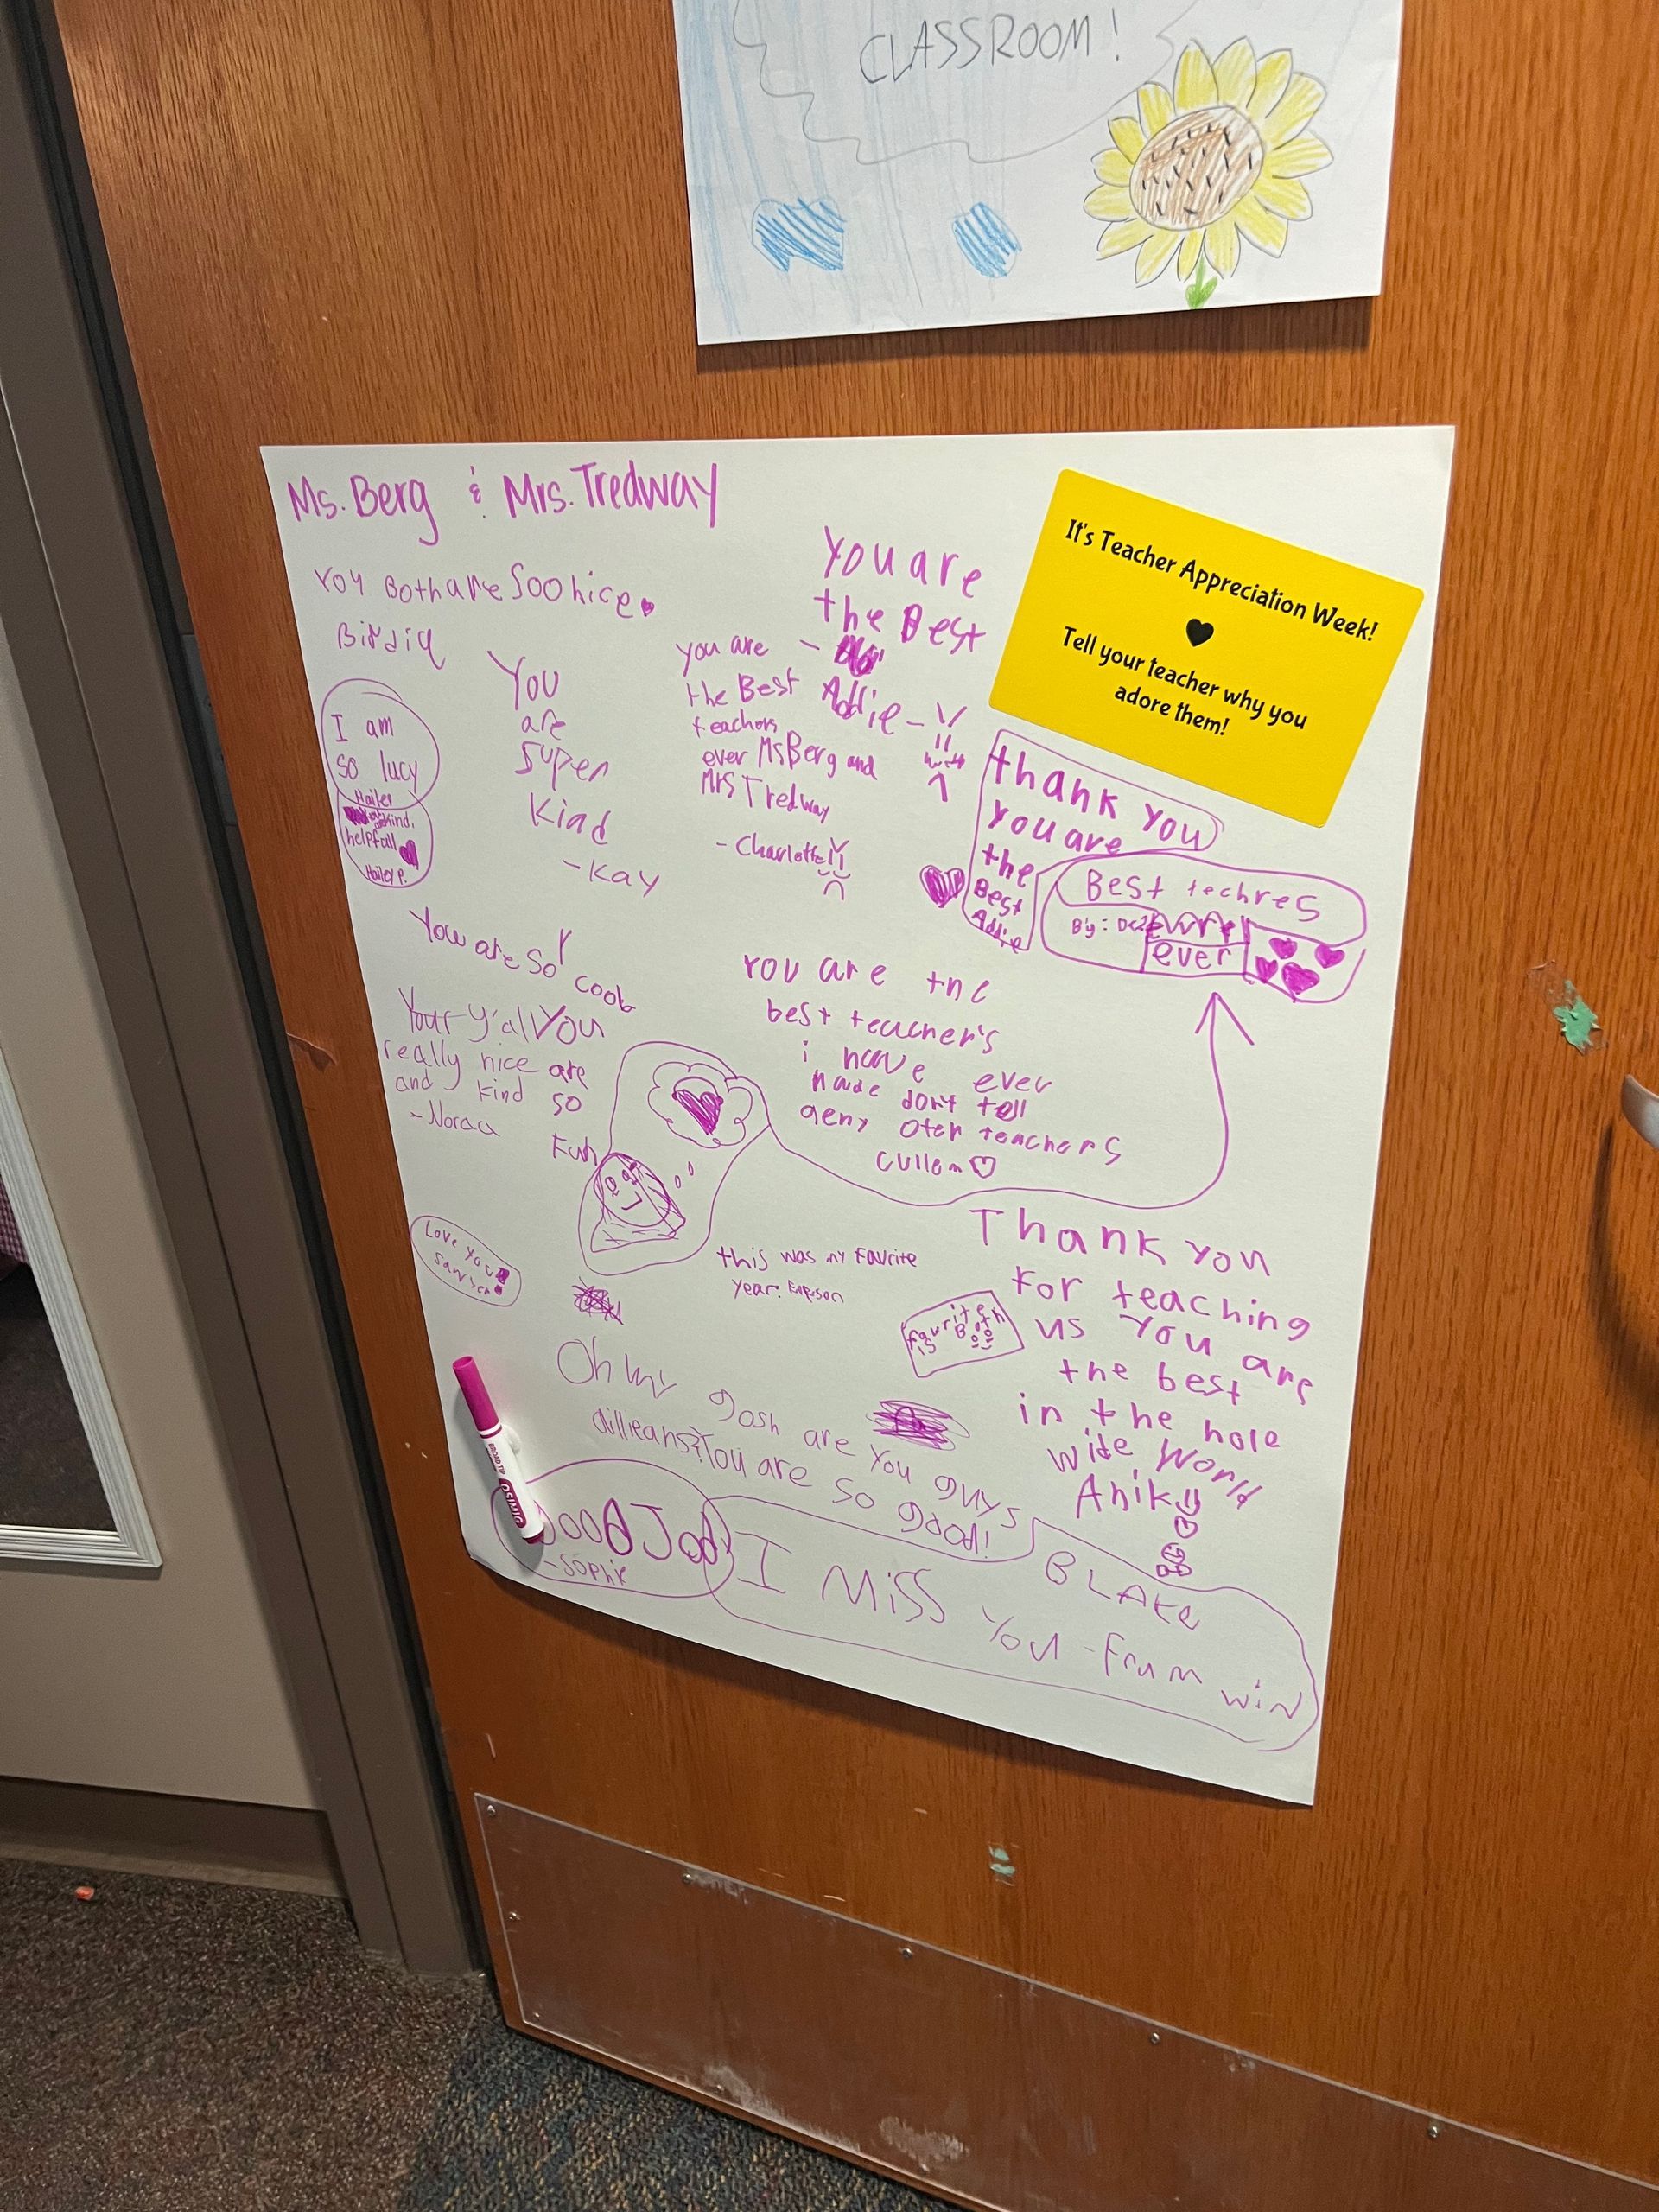 CLASSROOM!
Ms. Berg & Mrs. Tredway
It's Teacher Appreciation Week!
Tell your teacher why you
adore them!
you Both are Soo nice
You are
the Best
Addie
I am
so lucy
Hailey
kind,
helpfull
Hailey P.
You
are
super
Kind
-Kay
you are
the Best
teachers
ever Ms Berg and
Mrs Tredway
- Charlotte
thank you
you are
the
Best
Addie
Best techres
By:
ever
You are so
cool
Your y'all
really nice
and kind
- Norau
You
are
so
Fun
You are the
best teacher's
i have ever
hade dont tell
geny oter teachers
Cullen
Love you!
this was my Favrite
year.
favrite
is Both
Thank you
For teaching
us You are
the best
in the hole
wide World
Anik
Oh my gosh are you guys
dilleans? You are so good!
Good Job
-Sophie
BLAKe
I Miss You -From win
BROAD TIP